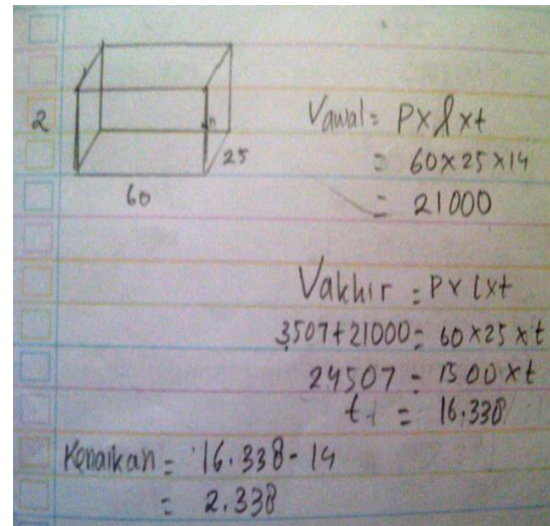 2
25
60
Vawal = P x l x t
= 60 x 25 x 14
= 21000
Vakhir = P x l x t
3507 + 21000 = 60 x 25 x t
24507 = 1500 x t
t = 16.338
Kenaikan = 16.338 - 14
= 2.338